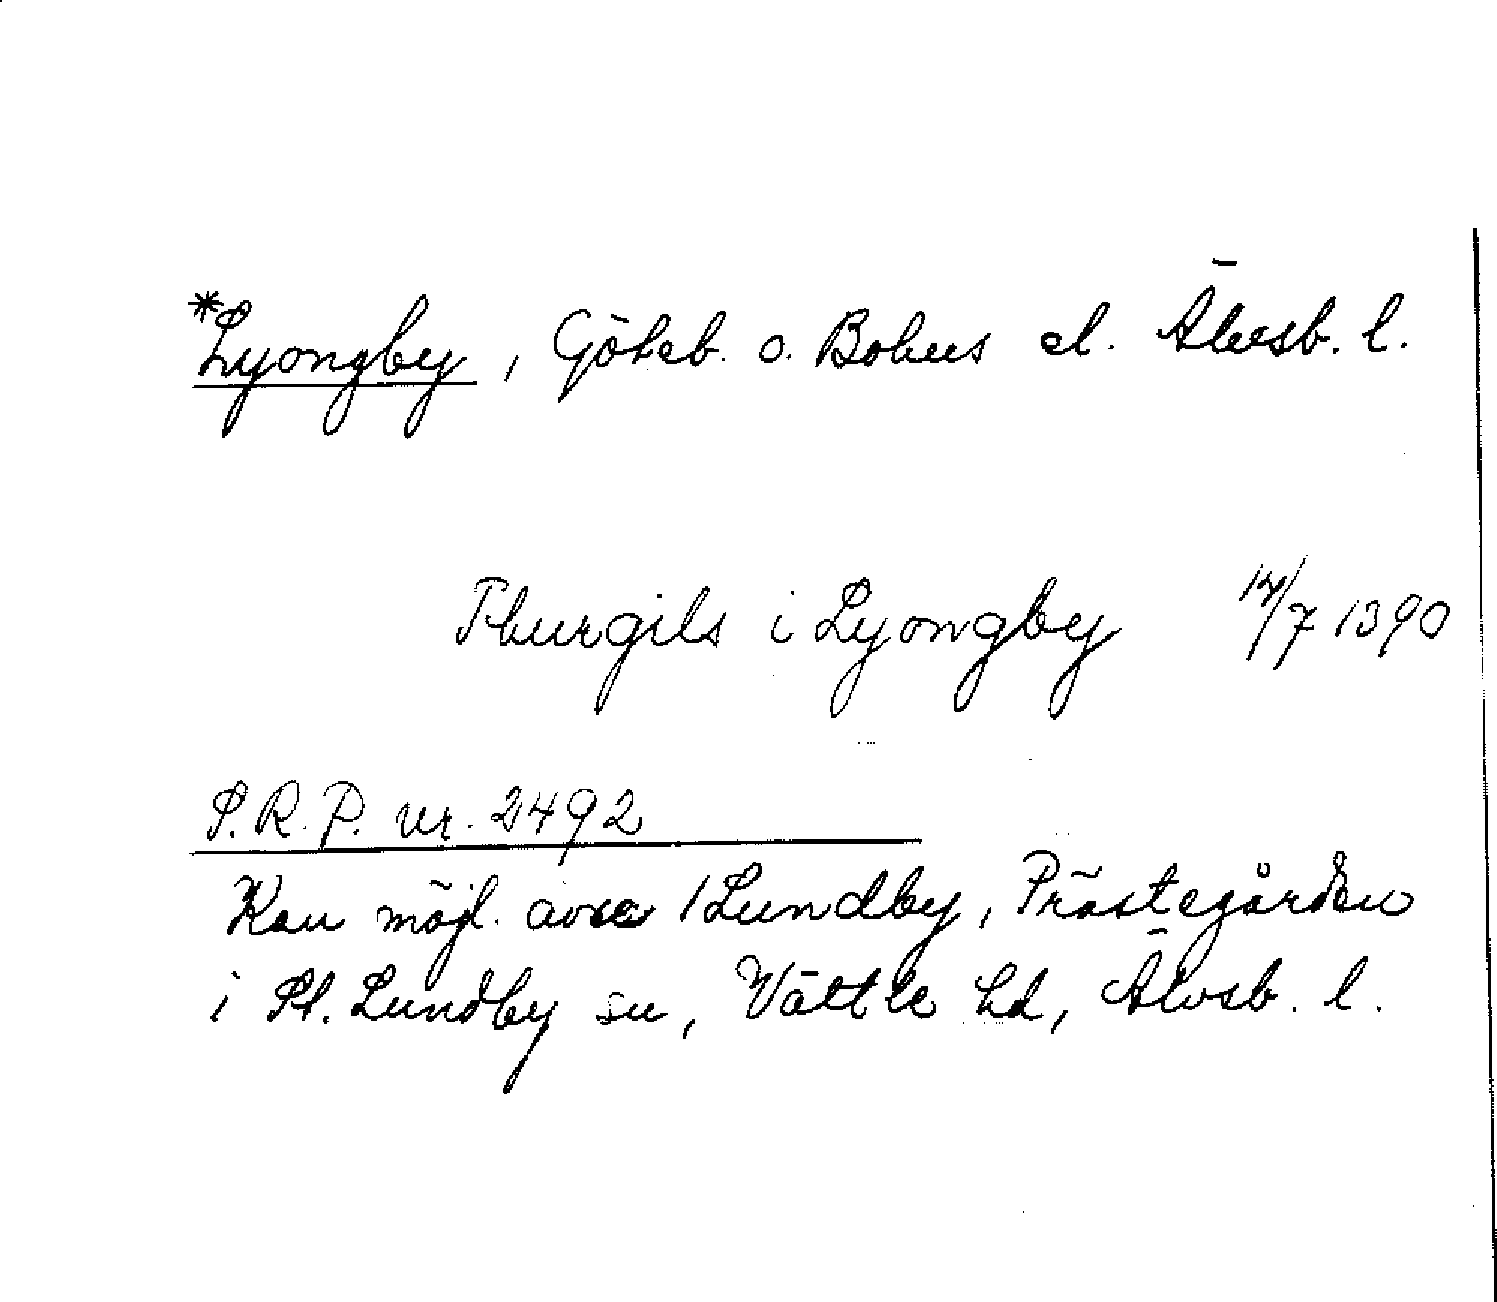 *Lyongby, Göteb. o. Bohus el. Älvsb. l.
Thurgils i Lyongby 14/7 1390
S.R.P. nr. 2492
Kan möjl. avse /Lundby, Prästegården
i St. Lundby sn, Vättle hd, Älvsb. l.